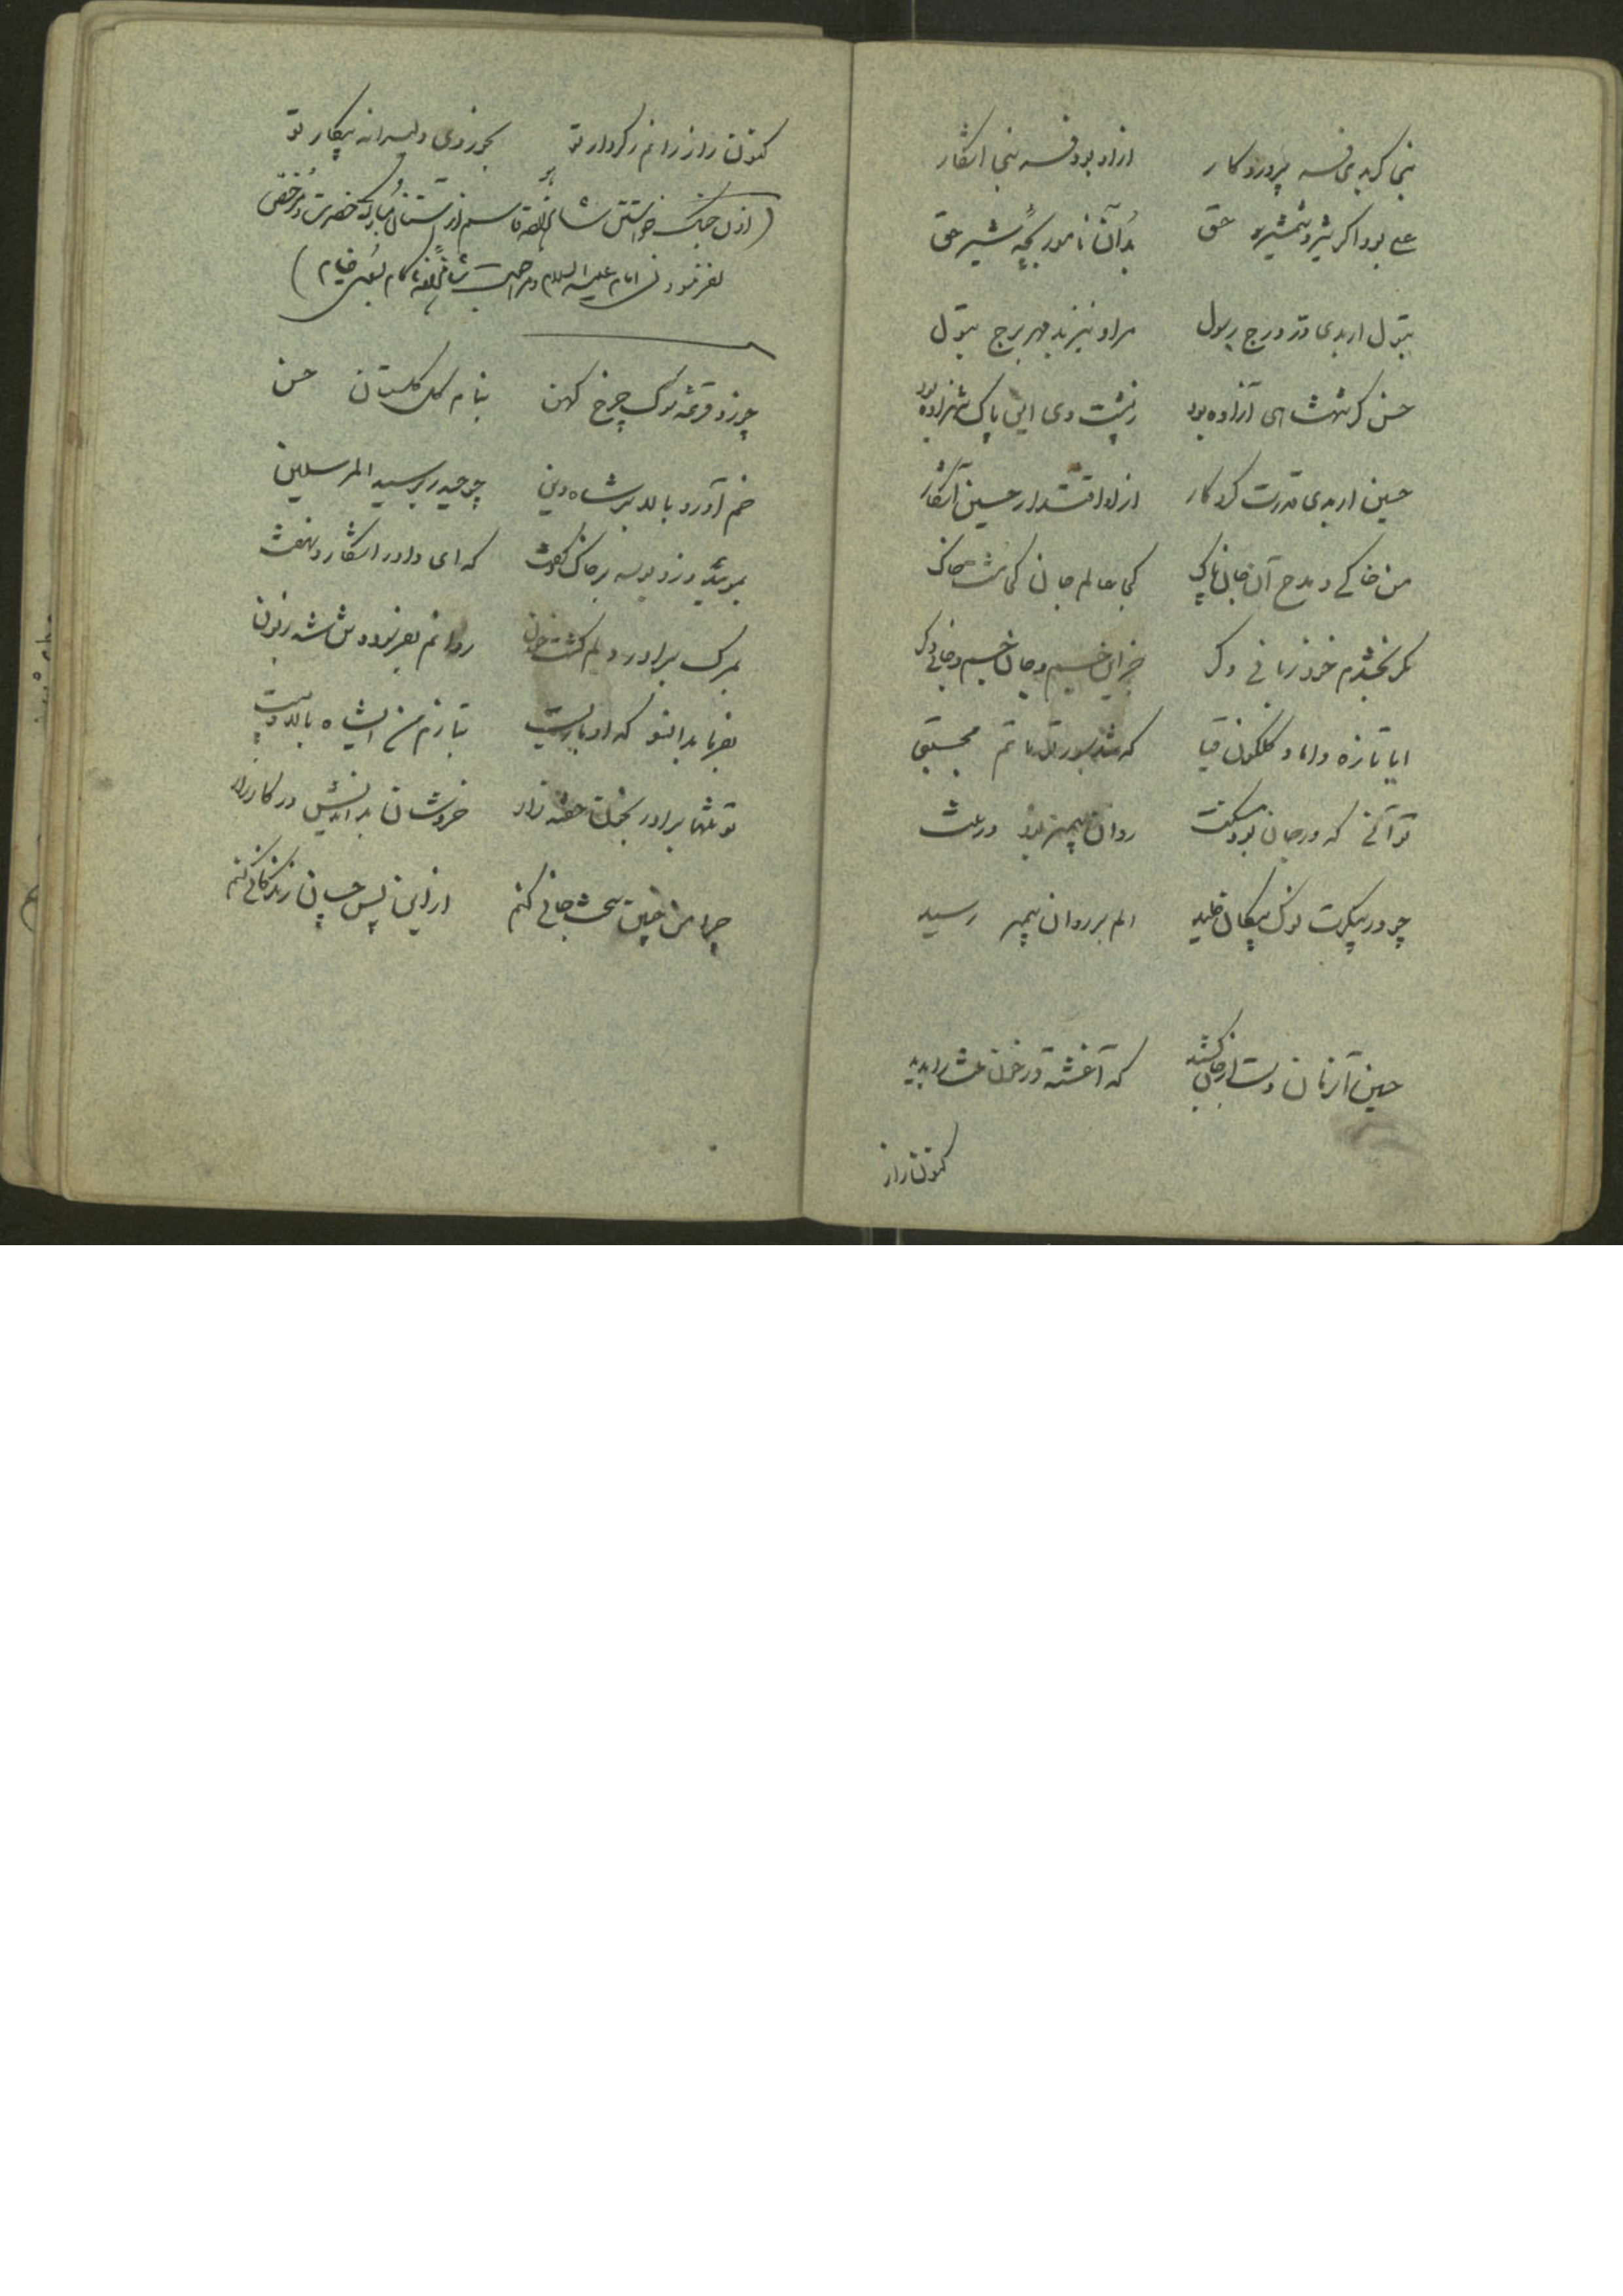 نبی گر بدی فره پروردگار ازاو بود فره نبی اشکار
علی بود اگر شیر و شمشیر حق بُد آن نامور بچهٔ شیر حق
بتول ار بدی در درج رسول مراو نیز بد مهر برج بتول
حسن گر شهنشاهی آزاده بود ز پشت وی این پاک شهزاده بود
حسین ار بدی قدرت کردگار ازاو اقتدار حسین آشکار
من خاکی و مدح آن جان پاک کجا عالم جان کجا مشت خاک
مگر بخشدم خود زبانی دگر جز این جسم و جان جسم و جانی دگر
ایا تازه داماد گلگون قبا که شد سور تو ماتم مجتبی
تو آنی که در جان بود روان پیمبر بود در
چو در پیکرت نوک پیکان خلید الم بر روان پیمبر رسید
حسین آنزمان دست از جان کشید که آغشته در خون را بدید
کنون راز
کنون راز رانم ز کردار تو بجوزدی دلیرانه پیکار تو
(اذن جنگ خواستن شاهزاده قاسم از آستان مبارک حضرت و مرخص
نفرمودن امام علیه السلام و مراجعت شاهزاده ناکام بسوی خیام)
چو زد قرعه نوک چرخ کهن بنام گل گلستان حسن
خم آورد بالا بر شاه دین چو حیدر بر سید المرسلین
بموئید و زد بوسه بر خاک و گفت که ای داور اشکار و نهفت
بمرگ برادر دلم گشت خون روانم بفرسود و تن شد زبون
بفرما بدانسو که او باره بتازم من ایشاه بالا و پست
تو تنها برادر بخون خفته زار خروشان بداندیش در کارزار
چرا من چنین سخت جانی کنم ازاین پس چسان زندگانی کنم